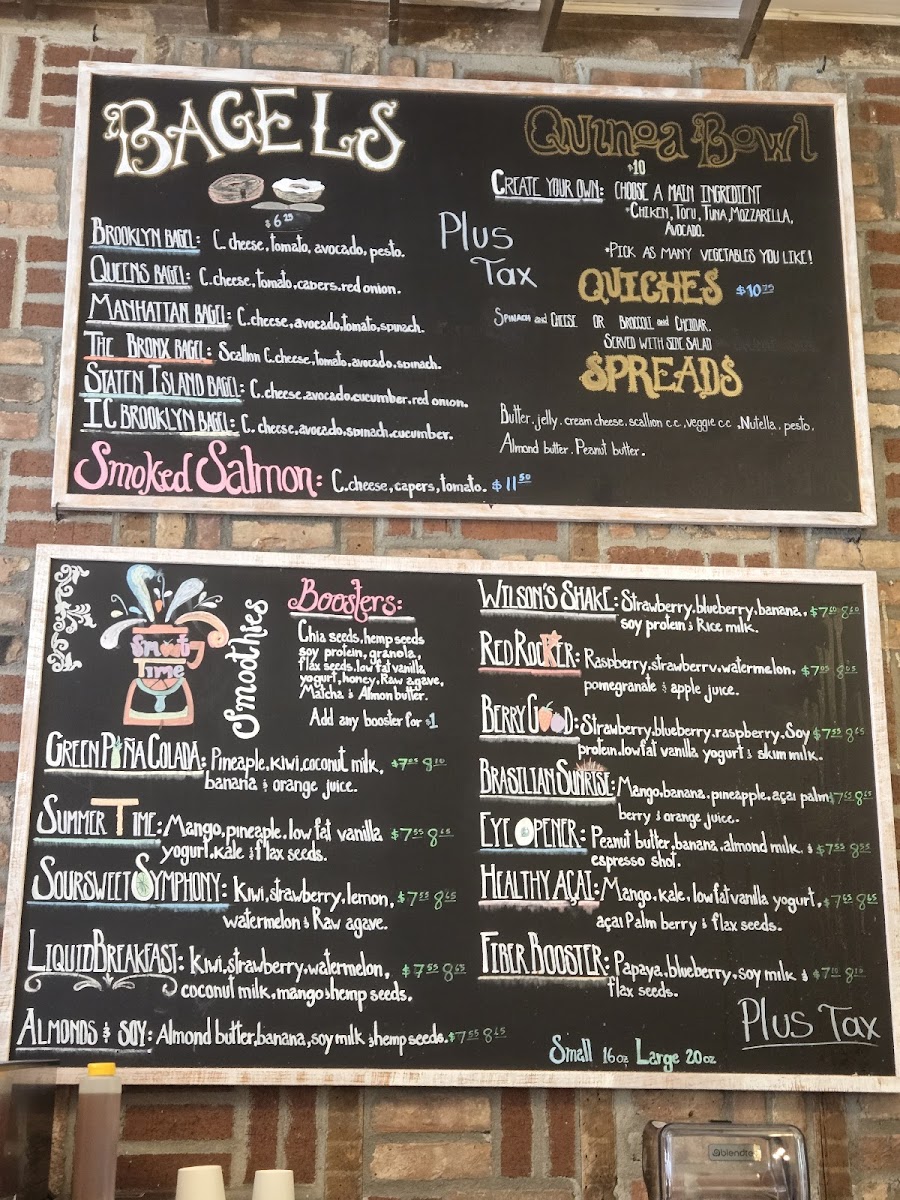 BAGELS
$6.25
BROOKLYN BAGEL: C. cheese, tomato, avocado, pesto.
QUEENS BAGEL: C. cheese, tomato, capers, red onion.
MANHATTAN BAGEL: C. cheese, avocado, tomato, spinach.
THE BRONX BAGEL: Scallion C. cheese, tomato, avocado, spinach.
STATEN ISLAND BAGEL: C. cheese, avocado, cucumber, red onion.
I.C BROOKLYN BAGEL: C. cheese, avocado, spinach, cucumber.
Smoked Salmon: C. cheese, capers, tomato. $11.50
Plus
Tax
Quinoa Bowl
$10
CREATE YOUR OWN: CHOOSE A MAIN INGREDIENT
*CHIKEN, TOFU, TUNA, MOZZARELLA,
AVOCADO.
*PICK AS MANY VEGETABLES YOU LIKE!
QUICHES $10.75
SPINACH and CHEESE OR BROCCOLI and CHEDDAR.
SERVED WITH SIDE SALAD
SPREADS
Butter, jelly, cream cheese, scallion c.c, veggie c.c, Nutella, pesto,
Almond butter, Peanut butter.
SMOOT
TIME
Smoothies
Boosters:
Chia seeds, hemp seeds
soy protein, granola,
flax seeds, low fat vanilla
yogurt, honey, Raw agave,
Matcha & Almon butter.
Add any booster for $1
GREEN PIÑA COLADA: Pineapple, kiwi, coconut milk,
banana & orange juice.
SUMMER TIME: Mango, pineapple, low fat vanilla $7.55 8.65
yogurt, kale & flax seeds.
SOURSWEET SYMPHONY: Kiwi, strawberry, lemon, $7.55 8.65
watermelon & Raw agave.
LIQUID BREAKFAST: Kiwi, strawberry, watermelon, $7.55 8.65
coconut milk, mango & hemp seeds.
ALMONDS & SOY: Almond butter, banana, soy milk & hemp seeds. $7.55 8.65
WILSON'S SHAKE: Strawberry, blueberry, banana,
soy protein & Rice milk.
RED ROCKER: Raspberry, strawberry, watermelon,
pomegranate & apple juice.
BERRY GOOD: Strawberry, blueberry, raspberry, Soy $7.55 8.65
protein, lowfat vanilla yogurt & skim milk.
BRASILIAN SUNRISE: Mango, banana, pineapple, açai palm
berry & orange juice.
EYE OPENER: Peanut butter, banana, almond milk, & $7.55 8.55
espresso shot.
HEALTHY AÇAI: Mango, kale, low fat vanilla yogurt, $7.65 8.65
açai Palm berry & flax seeds.
FIBER BOOSTER: Papaya, blueberry, soy milk & $7.10 8.10
flax seeds.
Plus Tax
Small 16oz Large 20oz
blendtec